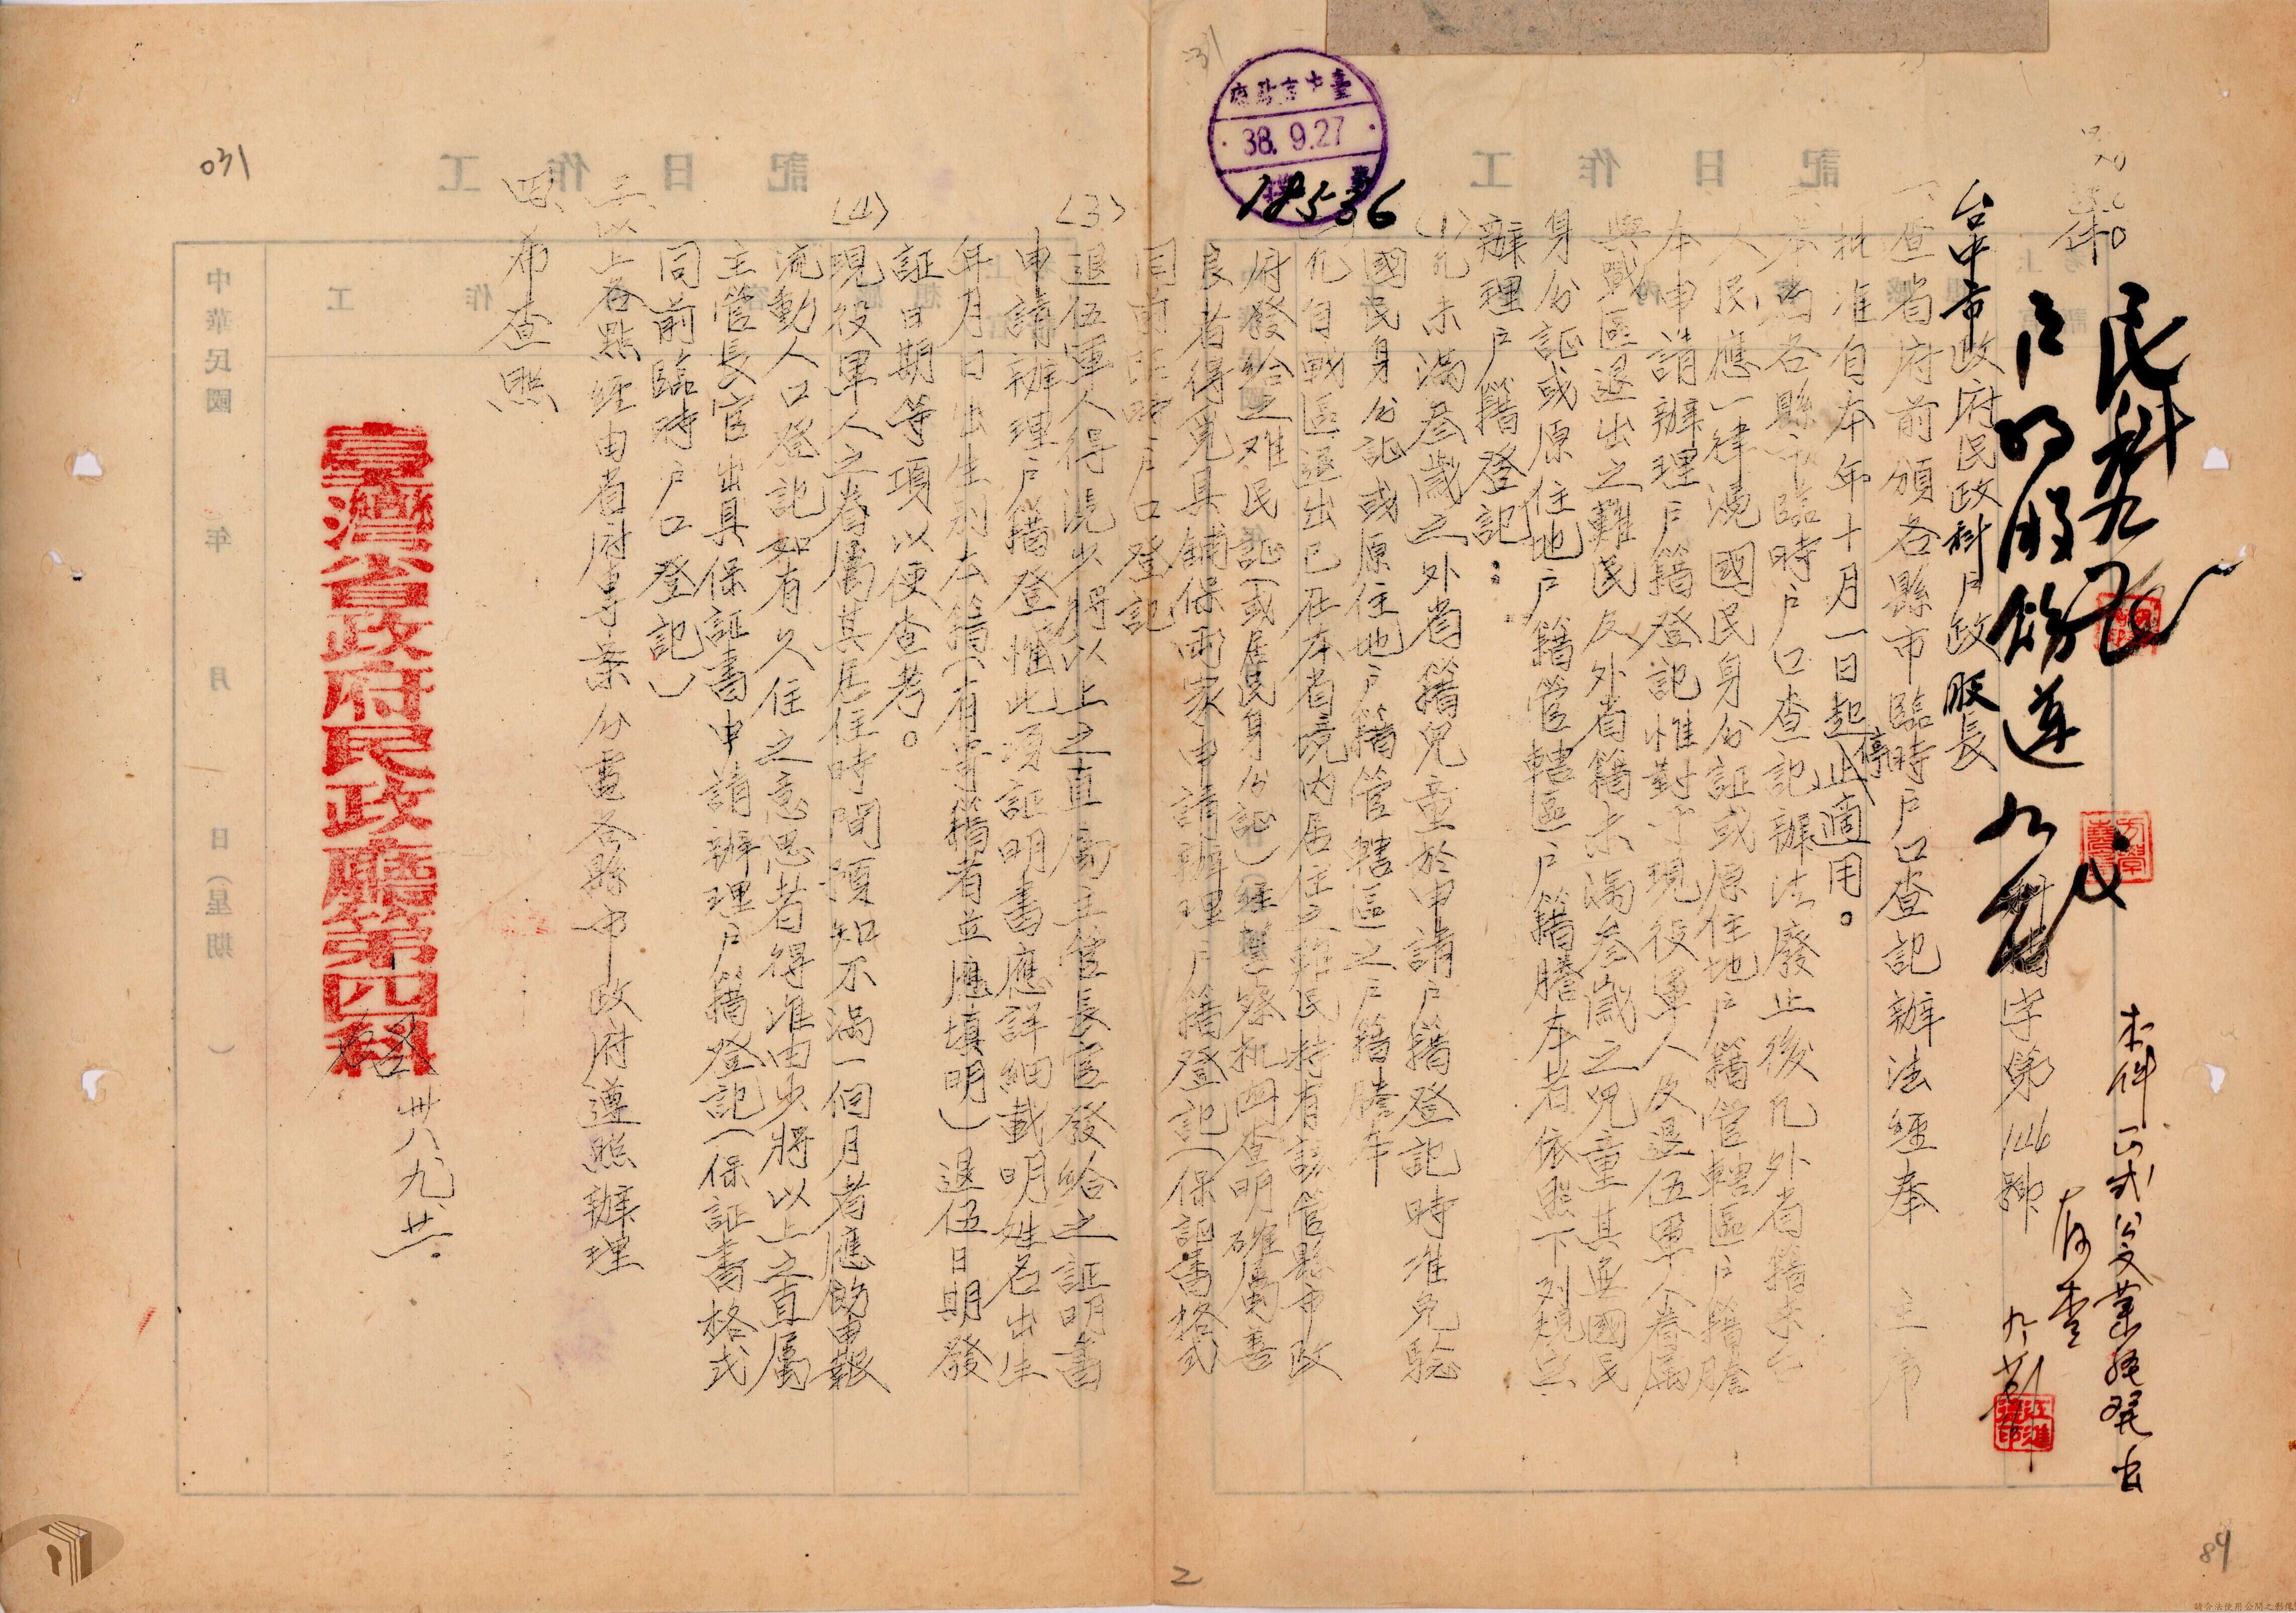 031
臺中市政府
38.9.27
18536
速件
台中市政府民政科戶政股長
字第146號
本件正式公文業經發出
存查
一、查省府前頒各縣市臨時戶口查記辦法經奉 主席
批准自本年十月一日起停止適用。
二、本省各縣市臨時戶口查記辦法廢止後凡外省籍來台
人民應一律憑國民身份証或原住地戶籍管轄區戶籍謄
本申請辦理戶籍登記惟對于現役軍人及退伍軍人眷屬
與戰區退出之難民及外省籍未滿叁歲之兒童其無國民
身份証或原住地戶籍管轄區戶籍謄本者依照下列規定
辦理戶籍登記：
(1)凡未滿叁歲之外省籍兒童於申請戶籍登記時准免驗
國民身份証或原住地戶籍管轄區之戶籍謄本
凡自戰區退出已在本省境內居住之難民持有該管縣市政
府發給之难民証(或居民身份証)經警察机関查明確屬善
良者得覓具舖保両家申請辦理戶籍登記(保証書格式
同前臨時戶口登記
(3)退伍軍人得憑少將以上之直屬主管長官發給之証明書
申請辦理戶籍登惟此項証明書應詳細載明姓名出生
年月日出生別本籍(有寄籍者並應填明)退伍日期發
証日期等項以便查考。
(4)現役軍人之眷屬其居住時間預知不滿一個月者應飭申報
流動人口登記如有久住之意思者得准由少將以上之直屬
主管長官出具保証書申請辦理戶籍登記(保証書格式
同前臨時戶口登記)
三、以上各點經由省府專案分電各縣市政府遵照辦理
四、希查照
臺灣省政府民政廳第四科
啓 卅八、九、廿一。
031
工作日記
工作日記
中華民國 年 月 日(星期 )
2
89
請合法使用公開之影像